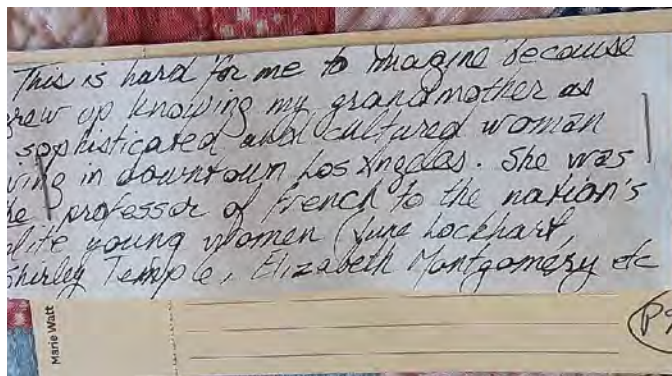 This is hard for me to imagine because
grew up knowing my grandmother as
sophisticated and cultured woman
ving in downtown Los Angeles. She was
he professor of French to the nation's
lite young women (June Lockhart,
Shirley Temple, Elizabeth Montgomery etc
Marie Watt